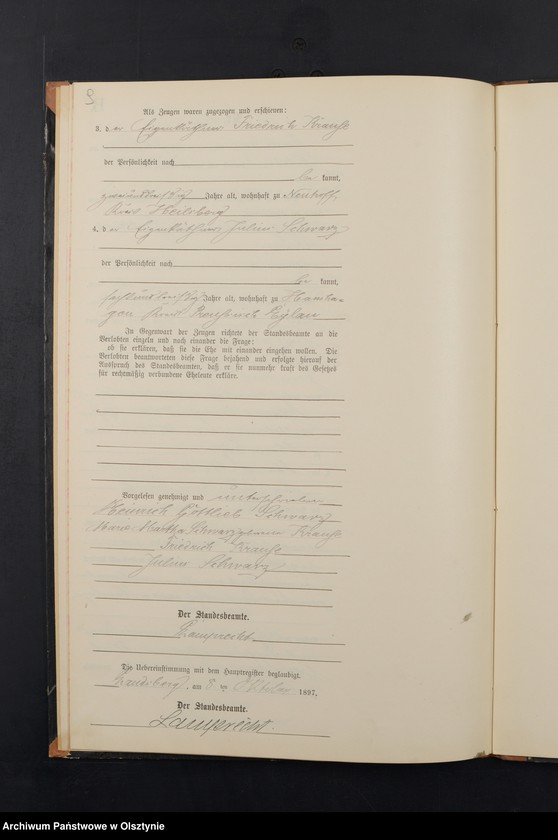 Als Zeugen waren zugezogen und erschienen:
3. der Eigenkäthner Friedrich Krause
der Persönlichkeit nach
be kannt,
zweiunddreißig Jahre alt, wohnhaft zu Neuhoff,
Kreis Heilsberg
4. der Eigenkäthner Julius Schwarz
der Persönlichkeit nach
be kannt,
Jahre alt, wohnhaft zu
Kreis Preußisch Eylau
In Gegenwart der Zeugen richtete der Standesbeamte an die
Verlobten einzeln und nach einander die Frage:
ob sie erklären, daß sie die Ehe mit einander eingehen wollen. Die
Verlobten beantworteten diese Frage bejahend und erfolgte hierauf der
Ausspruch des Standesbeamten, daß er sie nunmehr kraft des Gesetzes
für rechtmäßig verbundene Eheleute erkläre.
Vorgelesen genehmigt und unterschrieben
Heinrich Gottlieb Schwarz
Martha Schwarz geborne Krause
Friedrich Krause
Julius Schwarz
Der Standesbeamte.
Lamprecht
Die Uebereinstimmung mit dem Hauptregister beglaubigt.
am 8 ten Oktober 1897.
Der Standesbeamte.
Lamprecht.
Archiwum Państwowe w Olsztynie